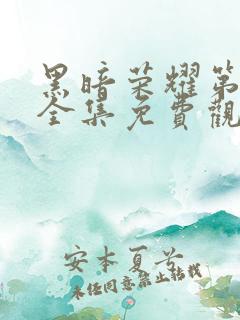 黑暗荣耀第
全集免費觀
安本夏子
未经同意禁止转载